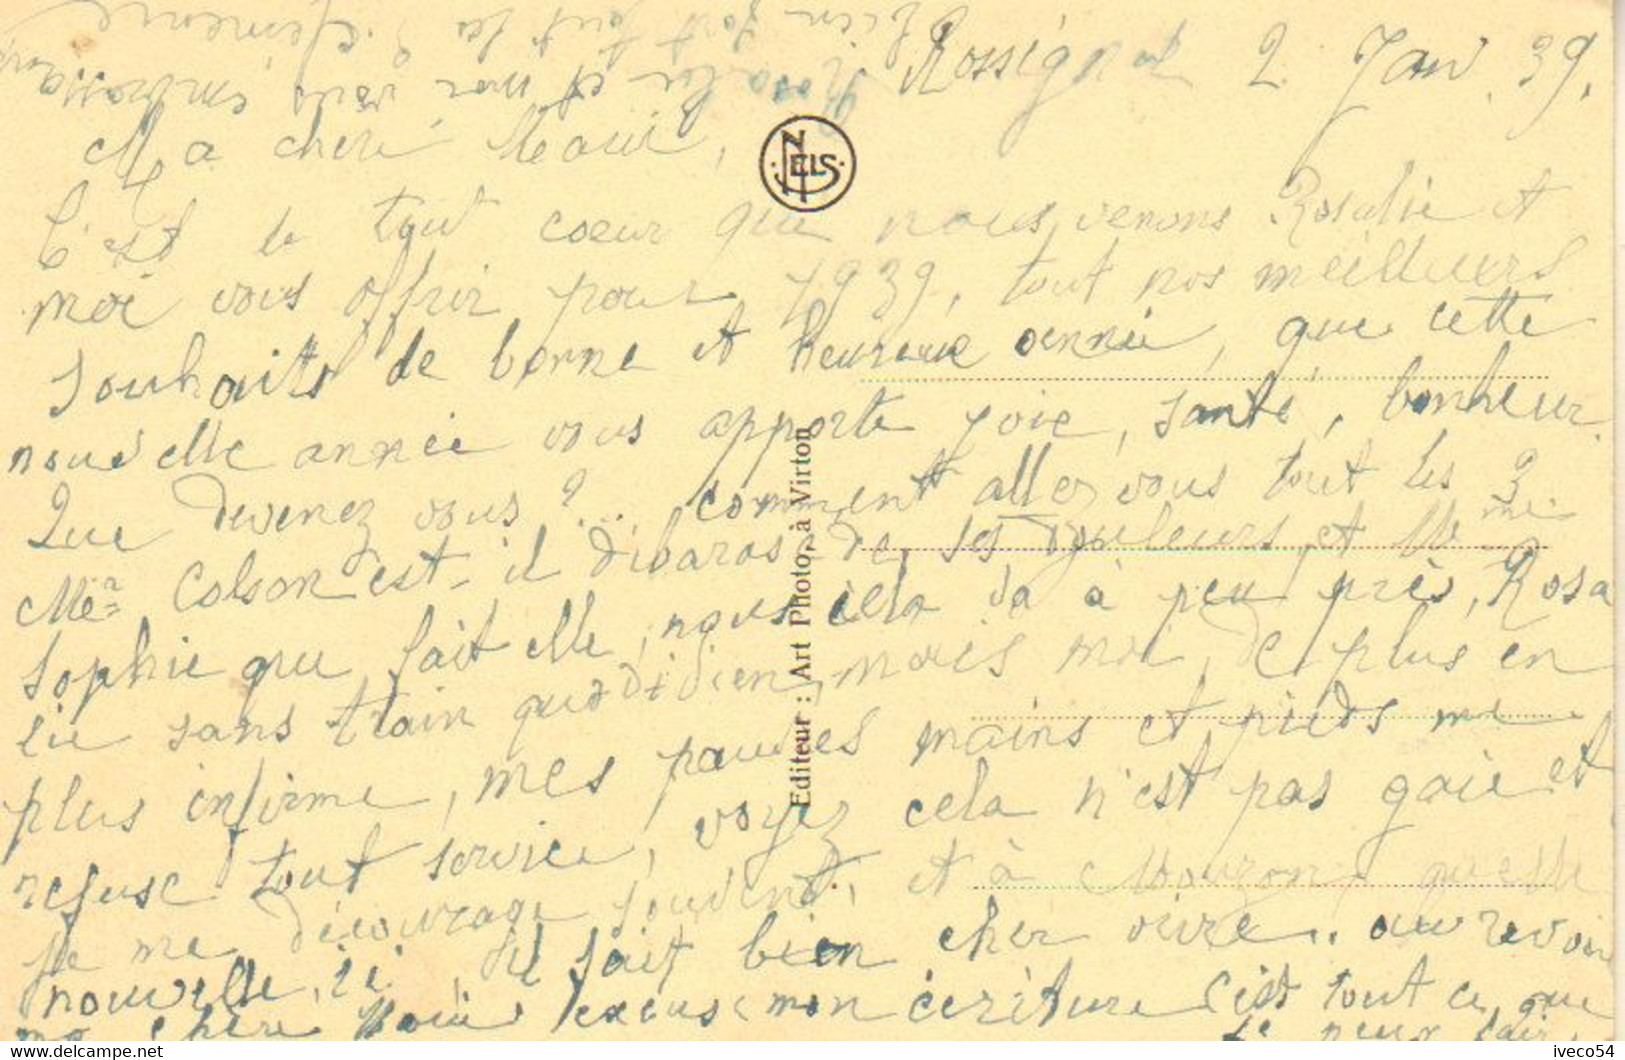 Rossignol 2 Janv. 39.
Ma chère Marie,
C'est de tout coeur que nous venons Rosalie et
moi vous offrir pour 1939, tout nos meilleurs
souhaits de bonne et heureuse année, que cette
nouvelle année vous apporte joie, santé, bonheur.
Que devenez vous ?.. comment allez vous tout les 3
Mer Colson est-il débaras de ses douleurs, et Mme
Sophie que fait elle, nous cela va à peu près, Rosa
lie sans train quotidien, mais moi, de plus en
plus infirme, mes pauvres mains et pieds me
refuse tout service, voyez cela n'est pas gaie et
je me décourage souvent, et à Mouzon, quelle
nouvelle, ici, il fait bien cher vivre.. au revoir
ma chère Marie excuse mon écriture c'est tout ce que
je peux fair.
Rosalie et moi vous embrassons
bien fort tout les 3
NELS
Editeur : Art Photo, à Virton
iveco54